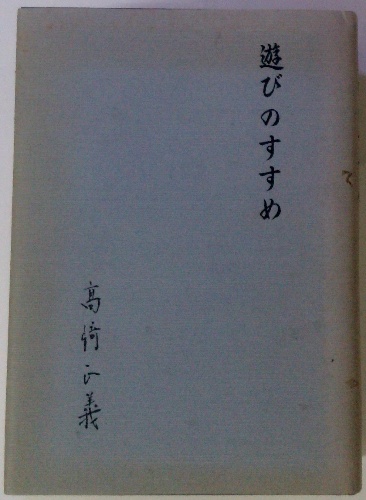 遊びのすすめ
高崎正義